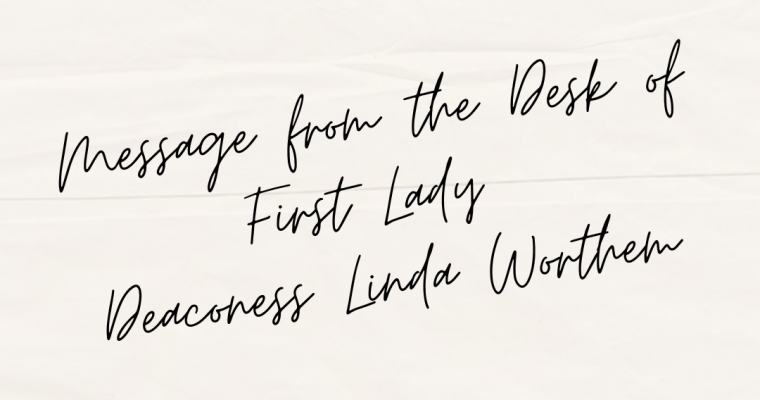 Message from the Desk of
First Lady
Deaconess Linda Worthem